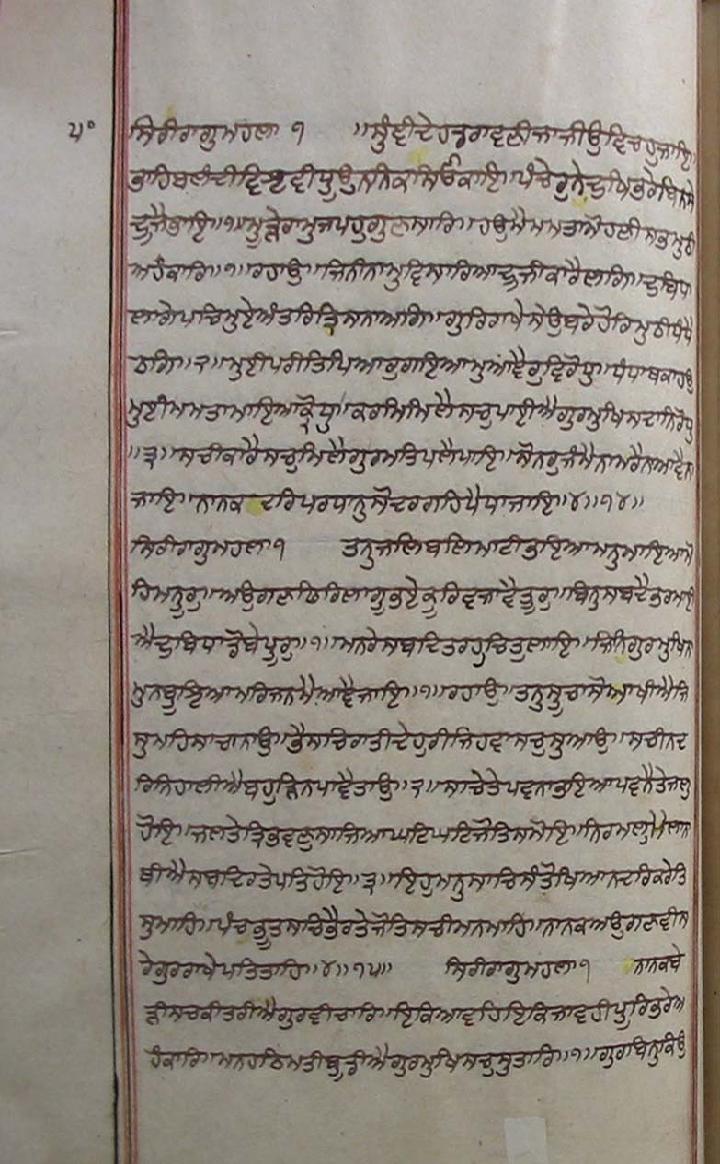 ੫੦ ਸਿਰੀਰਾਗੁਮਹਲਾ ੧ ॥ਸੁੰਞੀਦੇਹਡਰਾਵਣੀਜਾਜੀਉਵਿਚਹੁਜਾਇ
ਭਾਹਿਬਲੰਦੀਵਿਝਵੀਧੂਉਨਨਿਕਸਿਓਕਾਇ॥ਪੰਚੇਰੁੰਨੇਦੁਖਿਭਰੇਬਿਨਸੇ
ਦੂਜੈਭਾਇ॥੧॥ਮੂੜੇਰਾਮੁਜਪਹੁਗੁਣਸਾਰਿ॥ਹਉਮੈਮਮਤਾਮੋਹਣੀਸਭਮੁਠੀ
ਅਹੰਕਾਰਿ॥੧॥ਰਹਾਉ॥ਜਿਨੀਨਾਮੁਵਿਸਾਰਿਆਦੂਜੀਕਾਰੈਲਗਿ॥ਦੁਬਿਧਾ
ਲਾਗੇਪਚਿਮੁਏਅੰਤਰਿਤ੍ਰਿਸਨਾਅਗਿ॥ਗੁਰਿਰਾਖੇਸੇਉਬਰੇਹੋਰਿਮੁਠੀਧੰਧੈ
ਠਗਿ॥੨॥ਮੁਈਪਰੀਤਿਪਿਆਰੁਗਇਆਮੁਆਵੈਰੁਵਿਰੋਧੁ॥ਧੰਧਾਥਕਾਹਉ
ਮੁਈਮਮਤਾਮਾਇਆਕ੍ਰੋਧੁ॥ਕਰਮਿਮਿਲੈਸਚੁਪਾਈਐਗੁਰਮੁਖਿਸਦਾਨਿਰੋਧੁ
॥੩॥ਸਚੀਕਾਰੈਸਚੁਮਿਲੈਗੁਰਮਤਿਪਲੈਪਾਇ॥ਸੋਨਰੁਜੰਮੈਨਾਮਰੈਨਾਆਵੈਨਾ
ਜਾਇ॥ਨਾਨਕ ਦਰਿਪਰਧਾਨੁਸੋਦਰਗਹਿਪੈਧਾਜਾਇ॥੪॥੧੪॥
ਸਿਰੀਰਾਗੁਮਹਲਾ੧ ਤਨੁਜਲਿਬਲਿਮਾਟੀਭਇਆਮਨੁਮਾਇਆਮੋ
ਹਿਮਨੂਰੁ॥ਅਉਗਣਫਿਰਿਲਾਗੂਭਏਕੂਰਿਵਜਾਵੈਤੂਰੁ॥ਬਿਨੁਸਬਦੈਭਰਮਾਈ
ਐਦੁਬਿਧਾਡੋਬੇਪੂਰੁ॥੧॥ਮਨਰੇਸਬਦਿਤਰਹੁਚਿਤੁਲਾਇ॥ਜਿਨਿਗੁਰਮੁਖਿਨਾ
ਮੁਨਬੂਝਿਆਮਰਿਜਨਮੈਆਵੈਜਾਇ॥੧॥ਰਹਾਉ॥ਤਨੁਸੂਚਾਸੋਆਖੀਐਜਿ
ਸੁਮਹਿਸਾਚਾਨਾਉ॥ਭੈਸਚਿਰਾਤੀਦੇਹੁਰੀਜਿਹਵਾਸਚੁਸੁਆਉ॥ਸਚੀਨਦ
ਰਿਨਿਹਾਲੀਐਬਹੁੜਿਨਪਾਵੈਤਾਉ॥੨॥ਸਾਚੇਤੇਪਵਨਾਭਇਆਪਵਨੈਤੇਜਲੁ
ਹੋਇ॥ਜਲਤੇਤ੍ਰਿਭਵਣੁਸਾਜਿਆਘਟਿਘਟਿਜੋਤਿਸਮੋਇ॥ਨਿਰਮਲੁਮੈਲਾਨ
ਥੀਐਸਬਦਿਰਤੇਪਤਿਹੋਇ॥੩॥ਇਹੁਮਨੁਸਾਚਿਸੰਤੋਖਿਆਨਦਰਿਕਰੇਤਿ
ਸੁਮਾਹਿ॥ਪੰਚਭੂਤਸਚਿਭੈਰਤੇਜੋਤਿਸਚੀਮਨਮਾਹਿ॥ਨਾਨਕਅਉਗਣਵੀਸ
ਰੇਗੁਰਰਾਖੇਪਤਿਤਾਹਿ॥੪॥੧੫॥ ਸਿਰੀਰਾਗੁਮਹਲਾ੧ ਨਾਨਕਬੇ
ੜੀਸਚਕੀਤਰੀਐਗੁਰਵੀਚਾਰਿ॥ਇਕਿਆਵਹਿਇਕਿਜਾਵਹੀਪੂਰਿਭਰੇਅ
ਹੰਕਾਰਿ॥ਮਨਹਠਿਮਤੀਬੂਡੀਐਗੁਰਮੁਖਿਸਚੁਸੁਤਾਰਿ॥੧॥ਗੁਰਬਿਨੁਕਿਉ